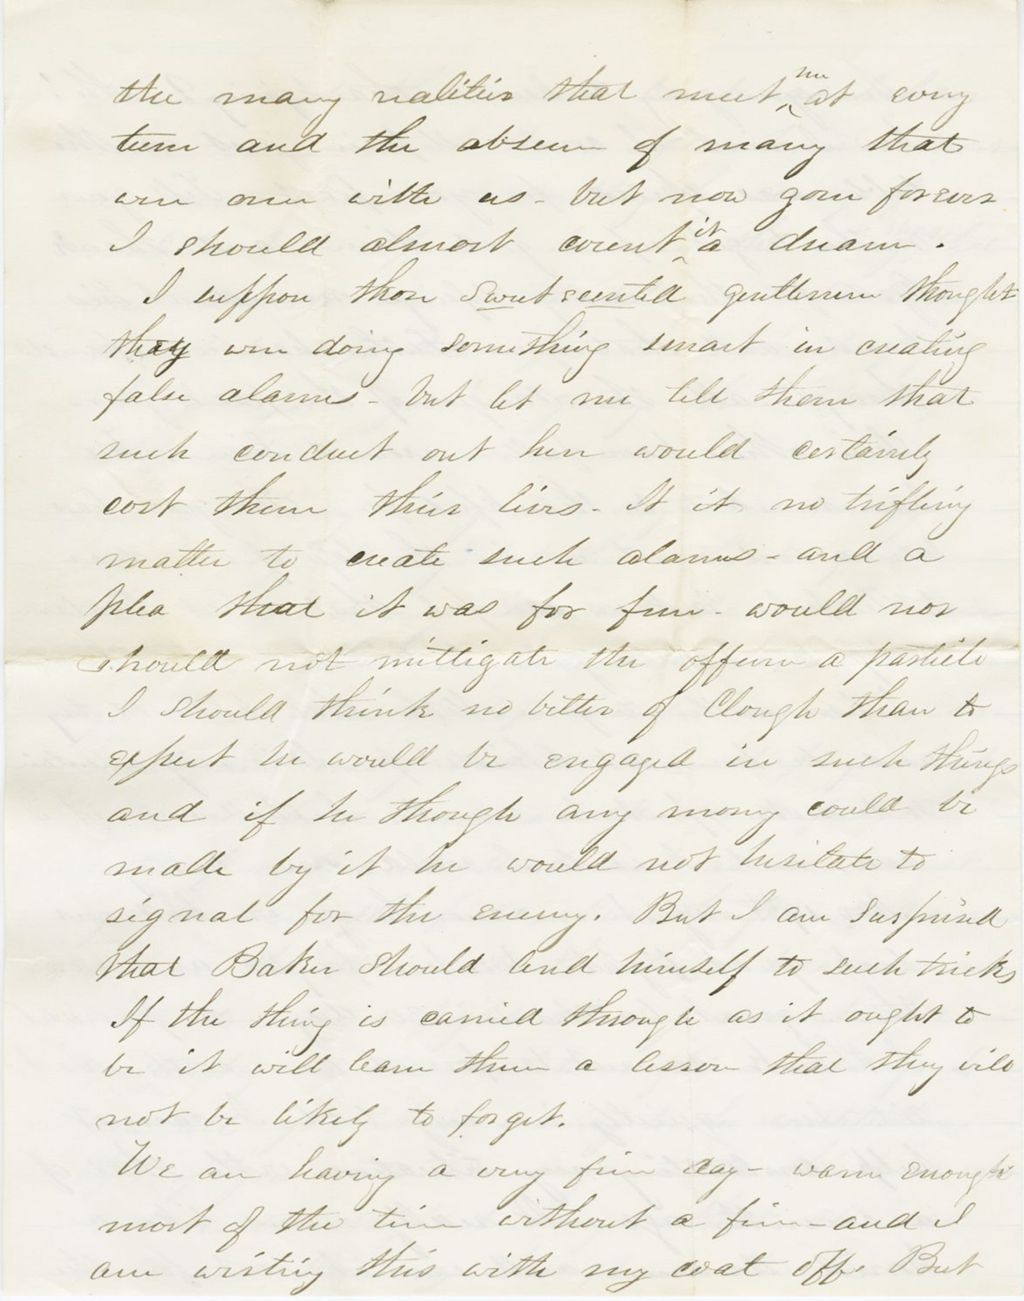 the many realities that meet me at every
turn and the absence of many that
were once with us - but now gone forever
I should almost count it a dream.
I suppose those sweet scented gentlemen thought
they were doing something smart in creating
false alarms - but let me tell them that
such conduct out here would certainly
cost them their lives - It it no trifling
matter to create such alarms - and a
plea that it was for fun - would nor
should not mittigate the offense a particle
I should think no better of Clough than to
expect he would be engaged in such things
and if he though any money could be
made by it he would not hesitate to
signal for the enemy. But I am surprised
that Baker should lend himself to such tricks
If the thing is carried through as it ought to
be it will learn them a lesson that they will
not be likely to forget.
We are having a very fine day - warm enough
most of the time without a fire - and I
am writing this with my coat off. But